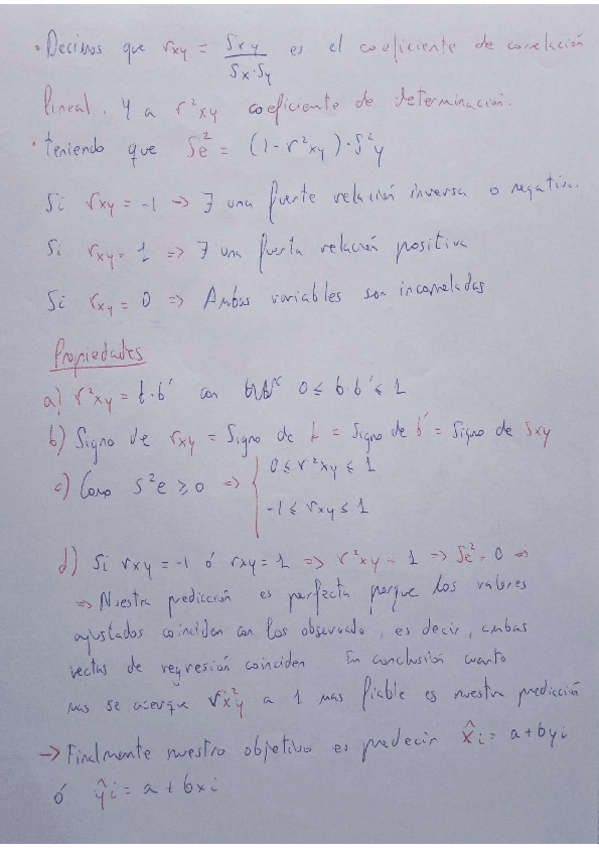 · Decimos que rxy = Sxy / Sx·Sy es el coeficiente de correlación
lineal. Y a r²xy coeficiente de determinación.
· teniendo que Se² = (1-r²xy)·S²y
Si rxy = -1 => ∃ una fuerte relación inversa o negativa.
Si rxy = 1 => ∃ una fuerte relación positiva
Si rxy = 0 => Ambas variables son incorreladas
Propiedades
a) r²xy = b·b' con 0 ≤ b b' ≤ 1
b) Signo de rxy = Signo de b = Signo de b' = Signo de Sxy
c) Como S²e ≥ 0 => { 0 ≤ r²xy ≤ 1
-1 ≤ rxy ≤ 1
d) Si rxy = -1 ó rxy = 1 => r²xy = 1 => Se² = 0 =>
=> Nuestra predicción es perfecta porque los valores
ajustados coinciden con los observado, es decir, ambas
rectas de regresión coinciden En conclusión cuanto
mas se acerque r²xy a 1 mas fiable es nuestra predicción
-> Finalmente nuestro objetivo es predecir x̂i = a + byi
ó ŷi = a + bxi